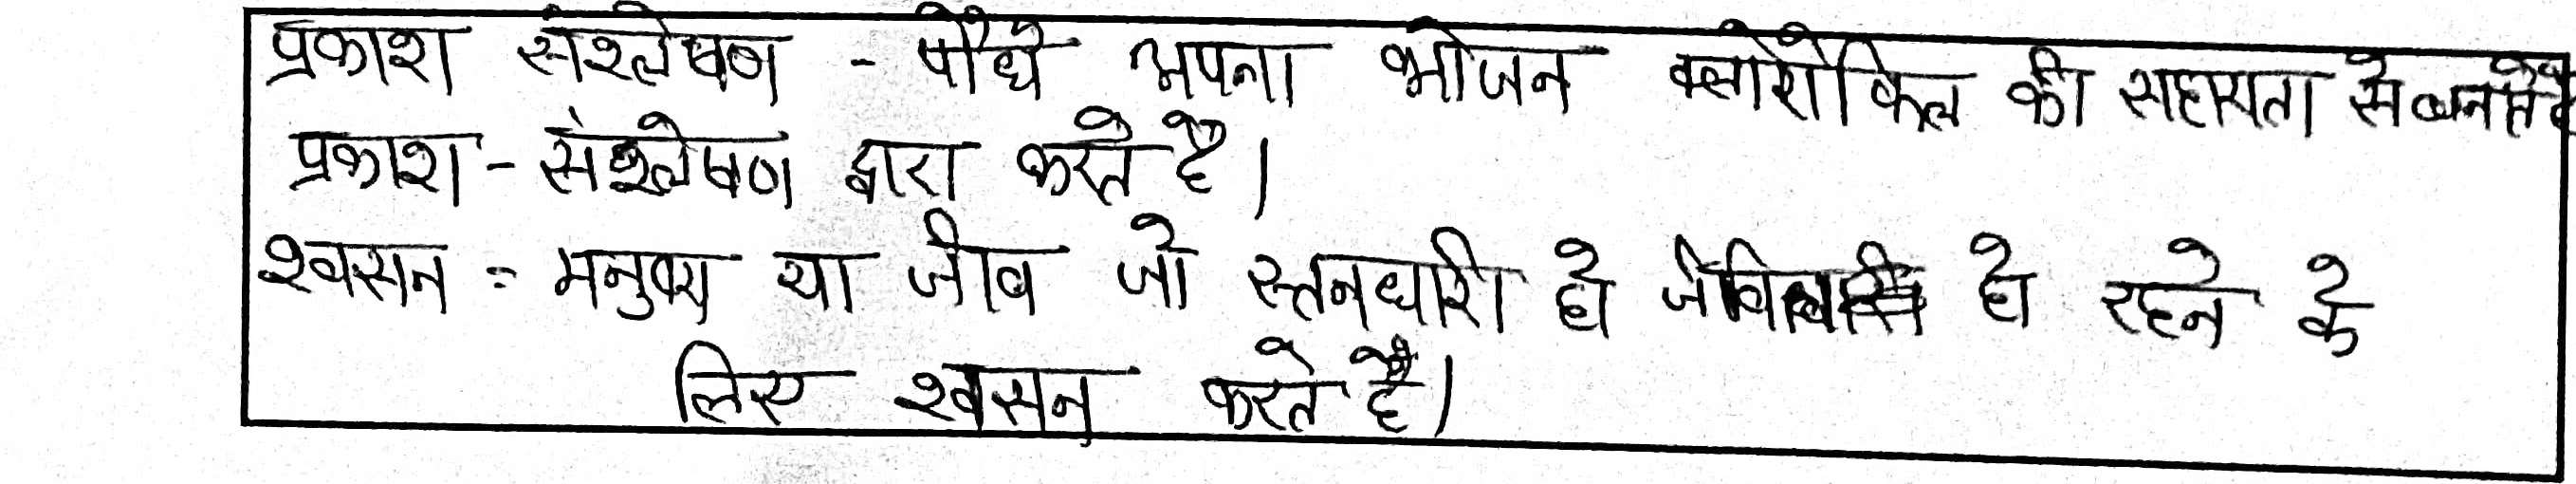 प्रकाश संश्लेषण - पौधे अपना भोजन क्लोरोकिल की सहायता से बनाते है
प्रकाश - संश्लेषण द्वारा करते है।
श्वसन = मनुष्य या जीव जो स्तनधारी हो हो रहने के
लिए श्वसन करते है।